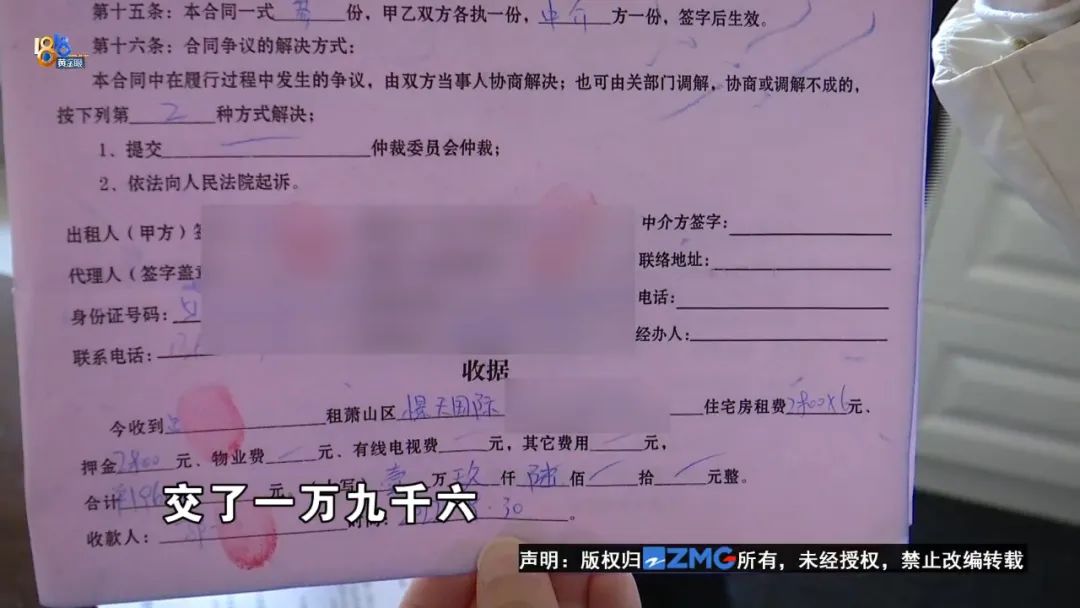 第十五条：本合同一式 份，甲乙双方各执一份，中介方一份，签字后生效。
1818
黄金眼
第十六条：合同争议的解决方式：
本合同中在履行过程中发生的争议，由双方当事人协商解决；也可由关部门调解，协商或调解不成的，
按下列第2种方式解决；
1、提交 仲裁委员会仲裁；
2、依法向人民法院起诉。
出租人（甲方）
代理人（签字盖
身份证号码：
联系电话：
中介方签字：
联络地址：
电话：
经办人：
收据
今收到 租萧山区 国际 住宅房租费2800×6元、
押金2800元、物业费 元、有线电视费 元，其它费用 元，
合计 元。 壹万玖仟陆佰 拾 元整。
收款人： 30。
交了一万九千六
声明：版权归ZMG所有，未经授权，禁止改编转载